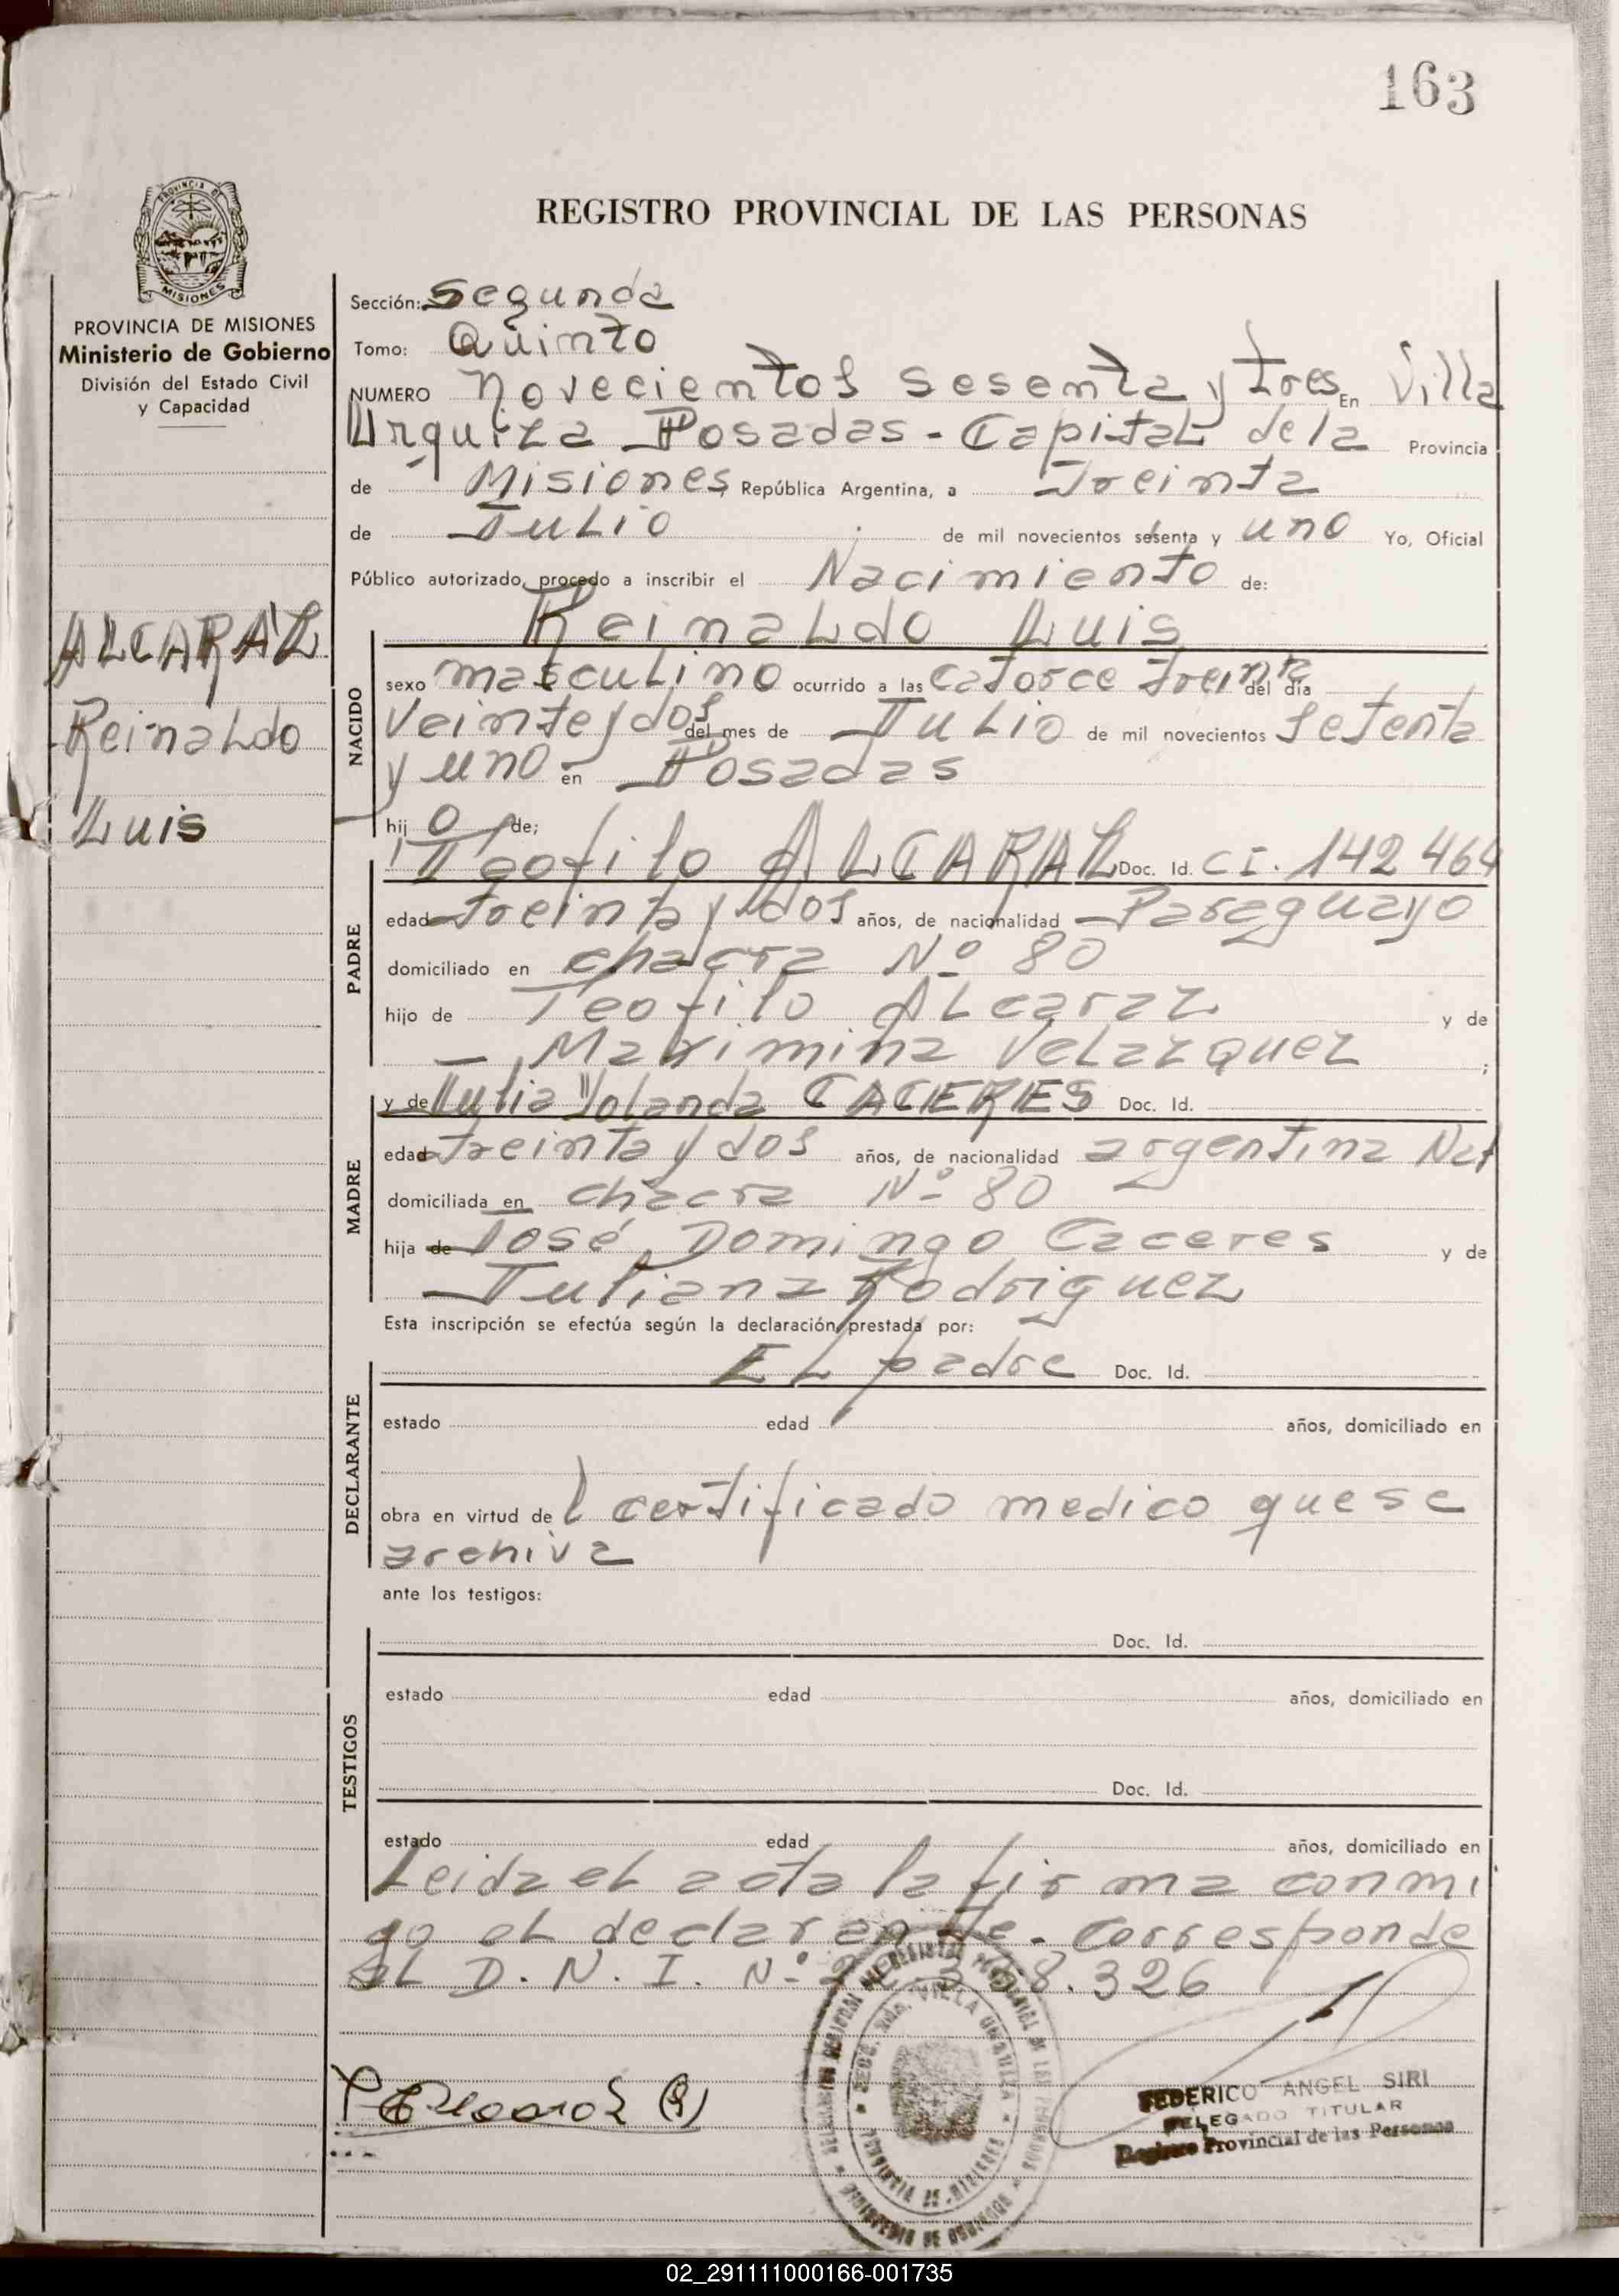 163
PROVINCIA DE
MISIONES
PROVINCIA DE MISIONES
Ministerio de Gobierno
División del Estado Civil
y Capacidad
ALCARAZ
Reinaldo
Luis
REGISTRO PROVINCIAL DE LAS PERSONAS
Sección: Segunda
Tomo: Quinto
NUMERO Novecientos sesenta y tres En Villa
Urquiza Posadas - Capital de la Provincia
de Misiones República Argentina, a Treinta
de Julio de mil novecientos sesenta y uno Yo, Oficial
Público autorizado, procedo a inscribir el Nacimiento de:
Reinaldo Luis
NACIDO
sexo masculino ocurrido a las catorce treinta del día
veinte y dos del mes de Julio de mil novecientos setenta
y uno en Posadas
hij o de;
PADRE
Teofilo ALCARAZ Doc. Id. CI. 142464
edad treinta y dos años, de nacionalidad Paraguayo
domiciliado en chacra Nº 80
hijo de Teofilo Alcaraz y de
Maximina Velazquez ;
MADRE
y de Julia Yolanda CACERES Doc. Id.
edad treinta y dos años, de nacionalidad argentina Nat
domiciliada en chacra Nº 80
hija de José Domingo Caceres y de
Juliana Rodriguez
Esta inscripción se efectúa según la declaración prestada por:
DECLARANTE
El padre Doc. Id.
estado edad años, domiciliado en
obra en virtud de l certificado medico que se
archiva
ante los testigos:
TESTIGOS
Doc. Id.
estado edad años, domiciliado en
Doc. Id.
estado edad años, domiciliado en
Leida el acta la firma conmi
go el declarante. Corresponde
al D. N. I. Nº 8.326
SECC. 2da. VILLA URQUIZA
PROVINCIA DE MISIONES
FEDERICO ANGEL SIRI
DELEGADO TITULAR
Registro Provincial de las Personas
02_291111000166-001735